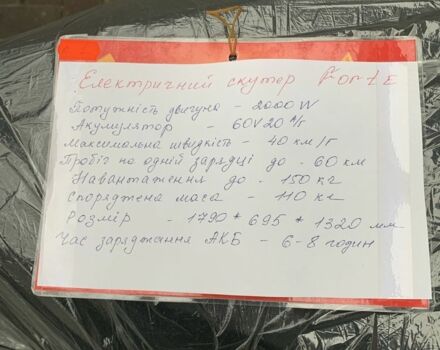 Електричний скутер Forte
Потужність двигуна - 2000 W
Акумулятор - 60V20 А/г
Максимальна швидкість - 40 км/г
Пробіг на одній зарядці до - 60 км
Навантаження до - 150 кг
Споряджена маса - 110 кг
Розмір - 1790 * 695 * 1320 мм
Час заряджання АКБ - 6-8 годин